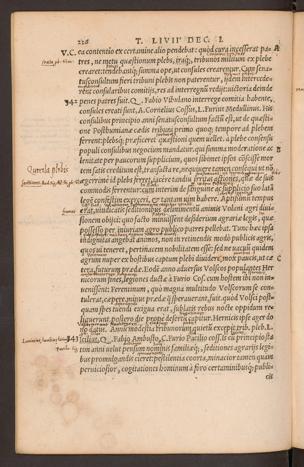 226 T. LIVII DEC. I.
V.C. ea contentio ex certamine alio pendebat: quòd cura incesserat pa A
tres, ne metu quæstionum plebs, iraq́;, tribunos militum ex plebe
crearet: tendebatq́; summa ope, ut consules crearentur. Cum sena‑
tusconsultum fieri tribuni plebis non paterentur, idem intercede‑
rent consularibus comitijs, res ad interregnũ redijt: uictoria deinde
342 penes patres fuit. Q. Fabio Vibulano interrege comitia habente,
consules creati sunt, A. Cornelius Cossus, L. Furius Medullinus. His
consulibus principio anni senatusconsultum factũ est, ut de quæsti‑
one Posthumianæ cædis tribuni primo quoq; tempore ad plebem
ferrent: plebsq́; præficeret quæstioni quem uellet. à plebe consensu
populi consulibus negocium mandatur: qui summa moderatione ac
lenitate per paucorum supplicium, quos sibimet ipsos cõscisse mor‑
tem satis creditum est, transacta re, nequiuere tamen consequi ut nõ
Querela plebis
ægerrime id plebs ferret, iacere tandiu irritas actiones, quæ de suis
commodis ferrentur: cum interim de sanguine ac supplicio suo latã
legẽ confestim exerceri, et tantam uim habere. Aptissimũ tempus
erat, uindicatis seditionibus, delenimentum animis Volani agri diui‑
sionem obijci: quo facto minuissent desiderium agrariæ legis, quæ
possesso per iniuriam agro publico patres pellebat. Tunc hæc ipsa
indignitas angebat animos, non in retinendis modo publicis agris,
quos ui teneret, pertinacem nobilitatem esse: sed ne uacuũ quidem
agrum nuper ex hostibus captum plebi diuidere: mox paucis, ut cæ C
tera, futurum prædæ. Eodẽ anno aduersus Volscos populantes Her
nicorum fines, legiones ductæ à Furio Cos. cum hostem ibi non in‑
uenissent: Ferentinum, quò magna multitudo Volscorum se con‑
tulerat, cepere. minus prædæ q̃ sperauerant, fuit: quòd Volsci post‑
quam spes tuendi exigua erat, sublatis rebus nocte oppidum re‑
liquerunt. postero die prope desertũ capitur. Hernicis ipse ager do
no datur. Annũ modestia tribunorum quietũ excepit trib. pleb. L.
343 Icilius, Q. Fabio Ambusto, C. Furio Pacilo coss. is cũ principio sta
tim anni uelut pensum nominis familiæq́;, seditiones agrarijs legi‑
bus promulgandis cieret: pestilentia coorta, minacior tamen quam
perniciosior, cogitationes hominum à foro certaminibusq́; publi‑
cis